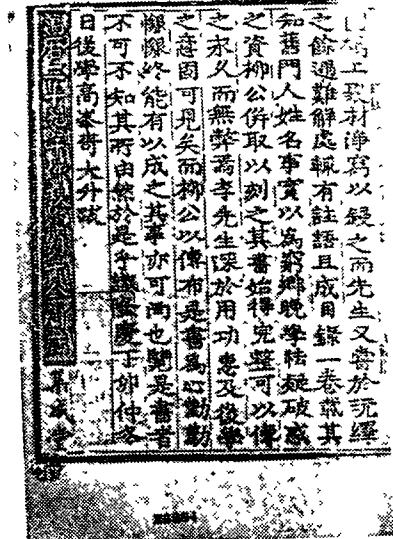 鳩工聚材淨寫以鋟之而先生又嘗於玩繹
之餘遇難解處輒有註語且成目錄一卷載其
知舊門人姓名事實以爲窮鄕晚學祛疑破惑
之資柳公倂取以刻之其書始得完整可以傳
之永久而無弊焉李先生深於用功惠及後學
之意固可見矣而柳公以傳布是書爲心勤勤
懇懇終能有以成之其事亦可尙也覽是書者
不可不知其所由然於是乎識隆慶丁卯仲冬
日後學高峯奇大升跋